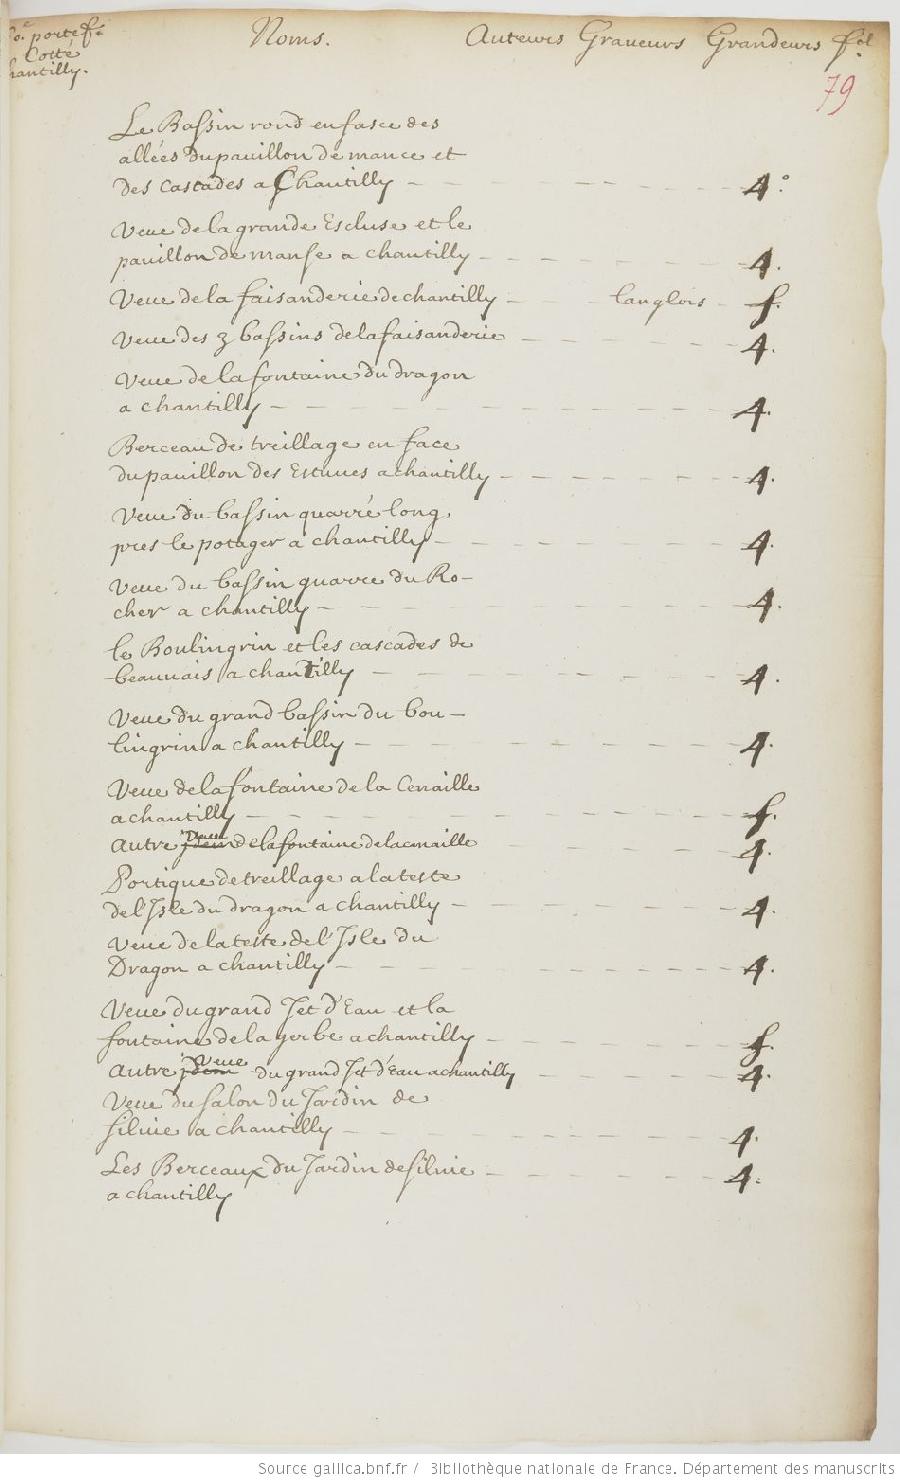 porte f.e Noms. Auteurs Graveurs Grandeurs f.el
Cotté
hantilly.
79
Le Bassin rond en face des
allées du pavillon de mance et
des Castades a Chantilly 4.°
Veue de la grande Escluse et le
pavillon de manse a chantilly 4.
Veue de la faisanderie de chantilly langlois f.
Veue des 3 bassins de la faisanderie 4.
Veue de la fontaine du dragon
a chantilly 4.
Berceau de treillage en face
du pavillon des Etuves a chantilly 4.
Veue du bassin quarré long
pres le potager a chantilly 4.
Veue du bassin quarre du Ro-
cher a chantilly 4.
le Boulingrin et les cascades de
beauvais a chantilly 4.
Veue du grand bassin du bou-
lingrin a chantilly 4.
Veue de la fontaine de la Cenaille
a chantilly f.
Autre jdem Veue de la fontaine de la cenaille 4.
Portique de treillage a la teste
de l'Isle du dragon a chantilly 4.
Veue de la teste de l'Isle du
Dragon a chantilly 4.
Veue du grand Jet d'Eau et la
fontaine de la gerbe a chantilly f.
Autre jdem Veue du grand Jet d'Eau a chantilly 4.
Veue du salon du Jardin de
silvie a chantilly 4.
Les Berceaux du Jardin de silvie 4.
a chantilly
Source gallica.bnf.fr / Bibliothèque nationale de France. Département des manuscrits